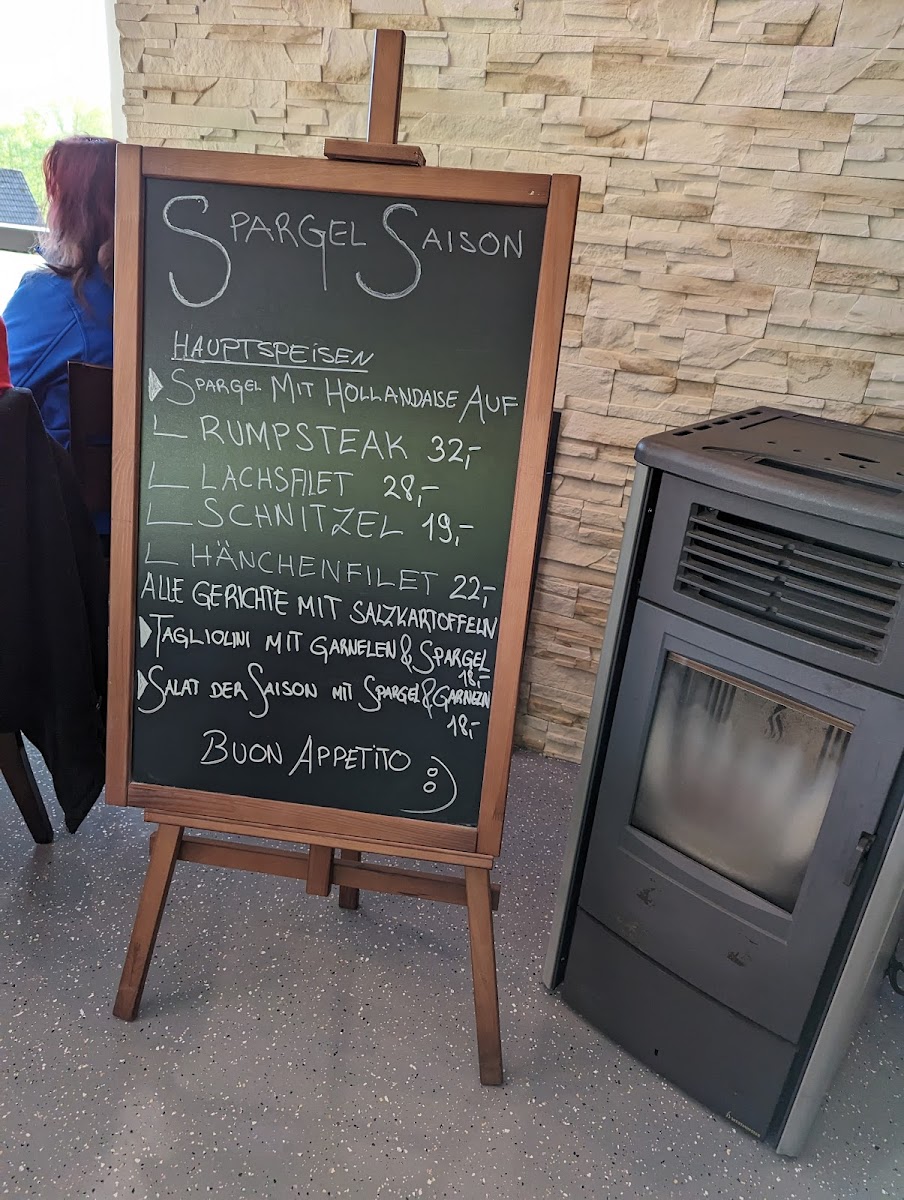 SPARGEL SAISON
HAUPTSPEISEN
SPARGEL MIT HOLLANDAISE AUF
RUMPSTEAK 32,-
LACHSFILET 28,-
SCHNITZEL 19,-
HÄNCHENFILET 22,-
ALLE GERICHTE MIT SALZKARTOFFELN
TAGLIOLINI MIT GARNELEN & SPARGEL
18,-
SALAT DER SAISON MIT SPARGEL & GARNELN
18,-
BUON APPETITO :)